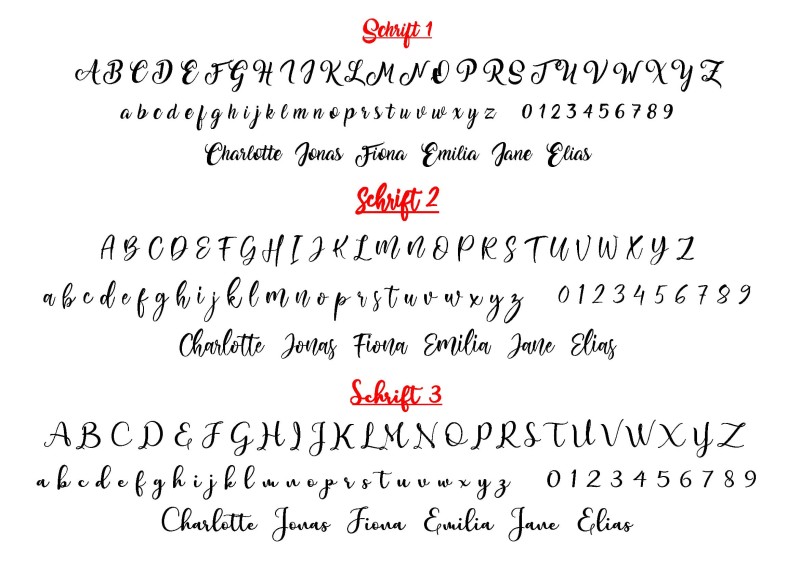 Schrift 1
A B C D E F G H I J K L M N O P R S T U V W X Y Z
a b c d e f g h i j k l m n o p r s t u v w x y z 0 1 2 3 4 5 6 7 8 9
Charlotte Jonas Fiona Emilia Jane Elias
Schrift 2
A B C D E F G H I J K L M N O P R S T U V W X Y Z
a b c d e f g h i j k l m n o p r s t u v w x y z 0 1 2 3 4 5 6 7 8 9
Charlotte Jonas Fiona Emilia Jane Elias
Schrift 3
A B C D E F G H I J K L M N O P R S T U V W X Y Z
a b c d e f g h i j k l m n o p r s t u v w x y z 0 1 2 3 4 5 6 7 8 9
Charlotte Jonas Fiona Emilia Jane Elias